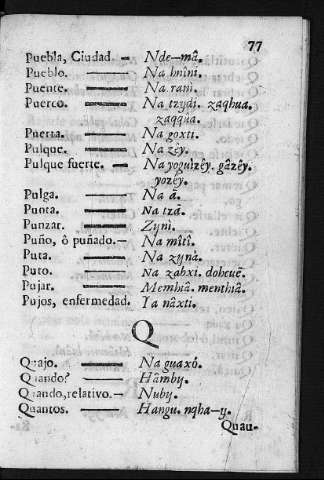 77
Puebla, Ciudad. — Nde—mâ.
Pueblo. — Na hnini.
Puente. — Na rani.
Puerco. — Na tzydi. zaqhua.
zaqqûa.
Puerta. — Na goxti.
Pulque. — Na zêy.
Pulque fuerte. — Na yogulzêy. gâzêy.
yozêy.
Pulga. — Na ã.
Punta. — Na tzã.
Punzar. — Zyni.
Puño, ô puñado. — Na mîtî.
Puta. — Na zynà.
Puto. — Na zabxi. dohcuẽ.
Pujar. — Memhiã. menthiã.
Pujos, enfermedad. Ya nâxti.
Q
Quajo. — Na guaxó.
Quando? — Hâmby.
Quando, relativo. — Nuby.
Quantos. — Hangu. nqha—y.
Quau-